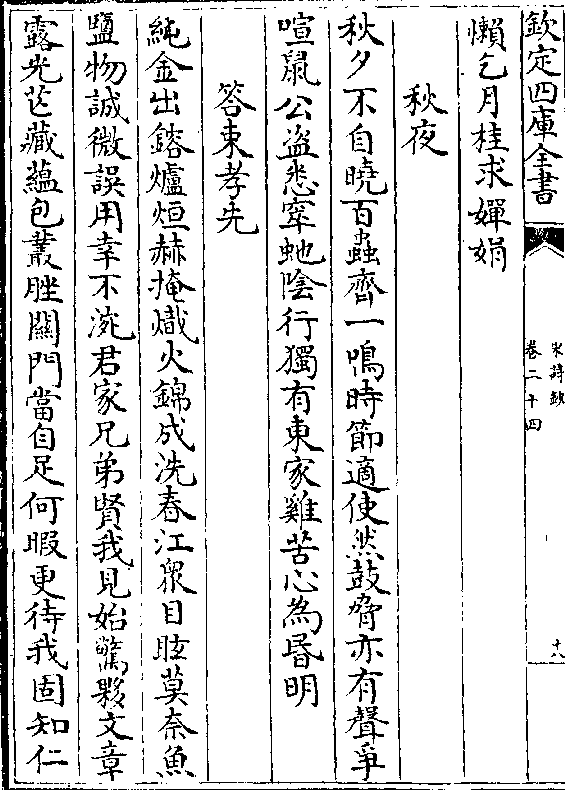 欽定四庫全書
宋詩鈔
卷二十四
十八
懶乞月桂求嬋娟
秋夜
秋夕不自曉百蟲齊一鳴時節適使然鼓脅亦有聲爭
喧鼠公盗悲窣虵陰行獨有東家雞苦心為昏明
答束孝先
純金出鎔爐烜赫掩熾火錦成洗春江衆目眩莫奈魚
鹽物誠微誤用幸不涴君家兄弟賢我見始驚夥文章
露光芒藏蘊包叢脞關門當自足何暇更待我固知仁